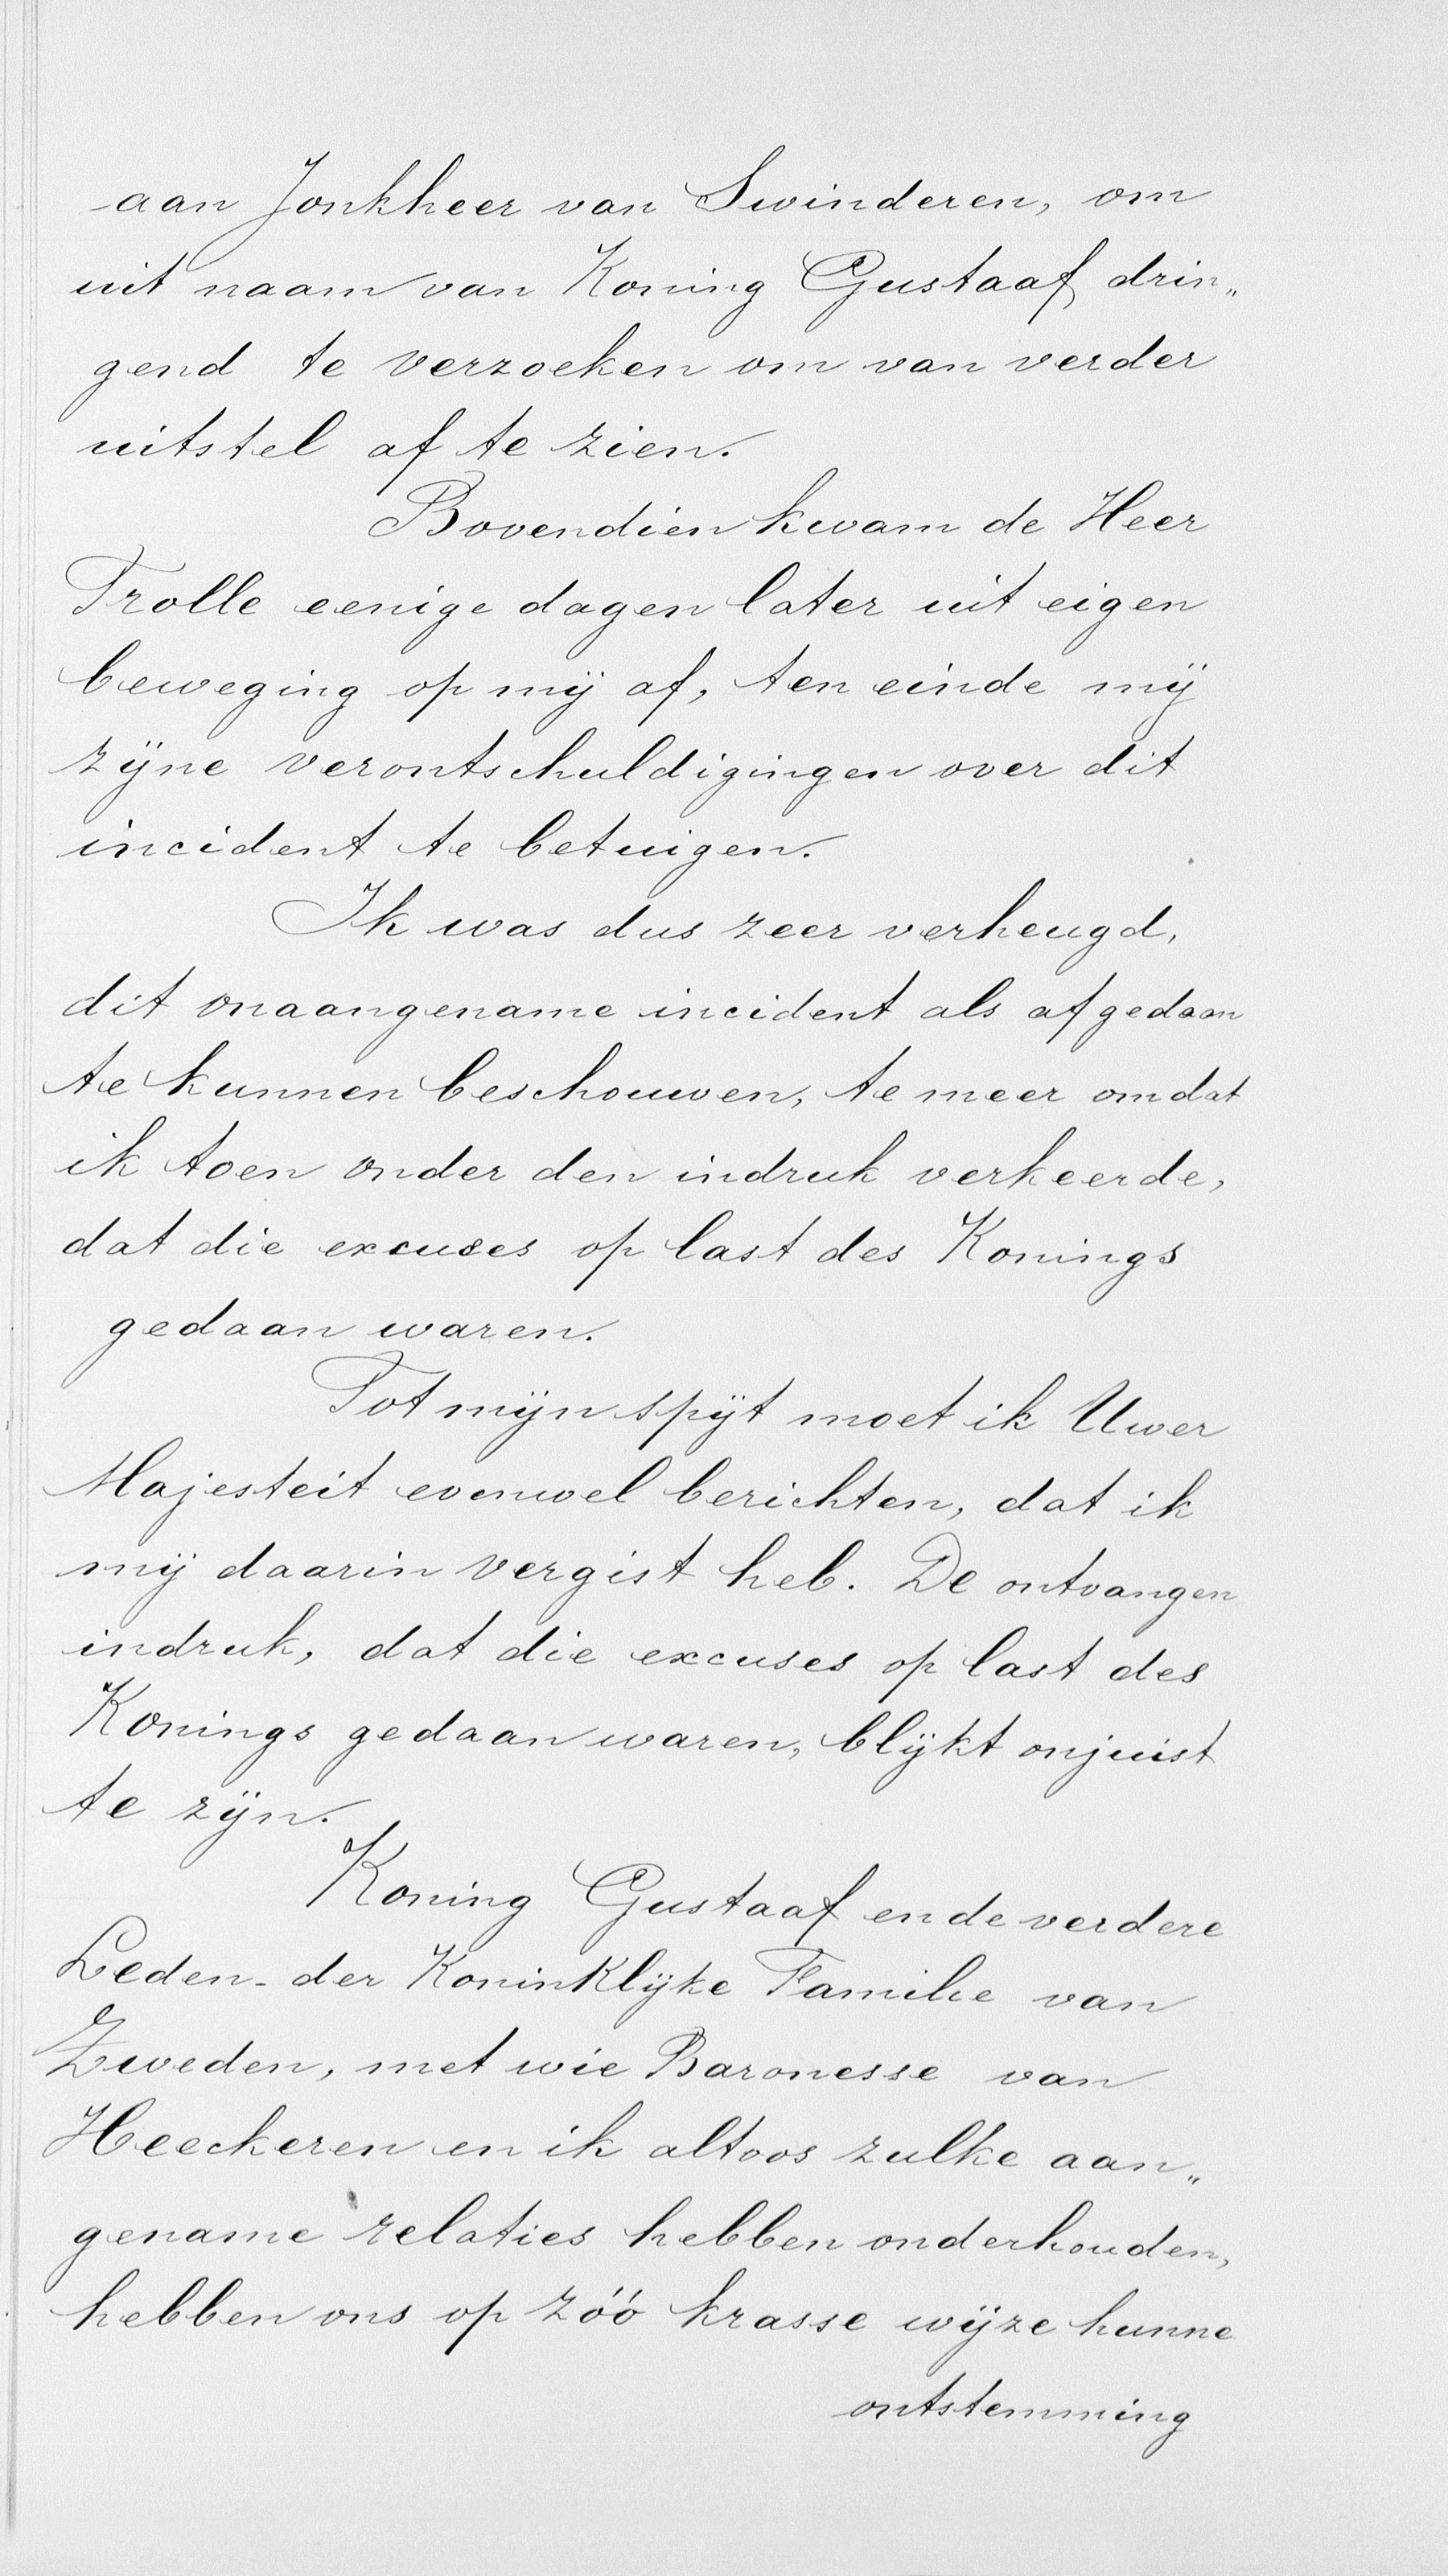 aan Jonkheer van Swinderen, om
uit naam van Koning Gustaaf drin„
gend te verzoeken om van verder
uitstel af te zien.
Bovendien kwam de Heer
Trolle eenige dagen later uit eigen
beweging op mij af, ten einde mij
zijne verontschuldigingen over dit
incident te betuigen.
Ik was dus zeer verheugd,
dit onaangename incident als afgedaan
te kunnen beschouwen, te meer omdat
ik toen onder den indruk verkeerde,
dat die excuses op last des Konings
gedaan waren.
Tot mijn spijt moet ik Uwer
Majesteit evenwel berichten, dat ik
mij daarin vergist heb. De ontvangen
indruk, dat die excuses op last des
Konings gedaan waren, blijkt onjuist
te zijn.
Koning Gustaaf en de verdere
Leden der Koninklijke Familie van
Zweden, met wie Baronesse van
Heeckeren en ik altoos zulke aan„
gename relaties hebben onderhouden,
hebben ons op zóó krasse wijze hunne
ontstemming